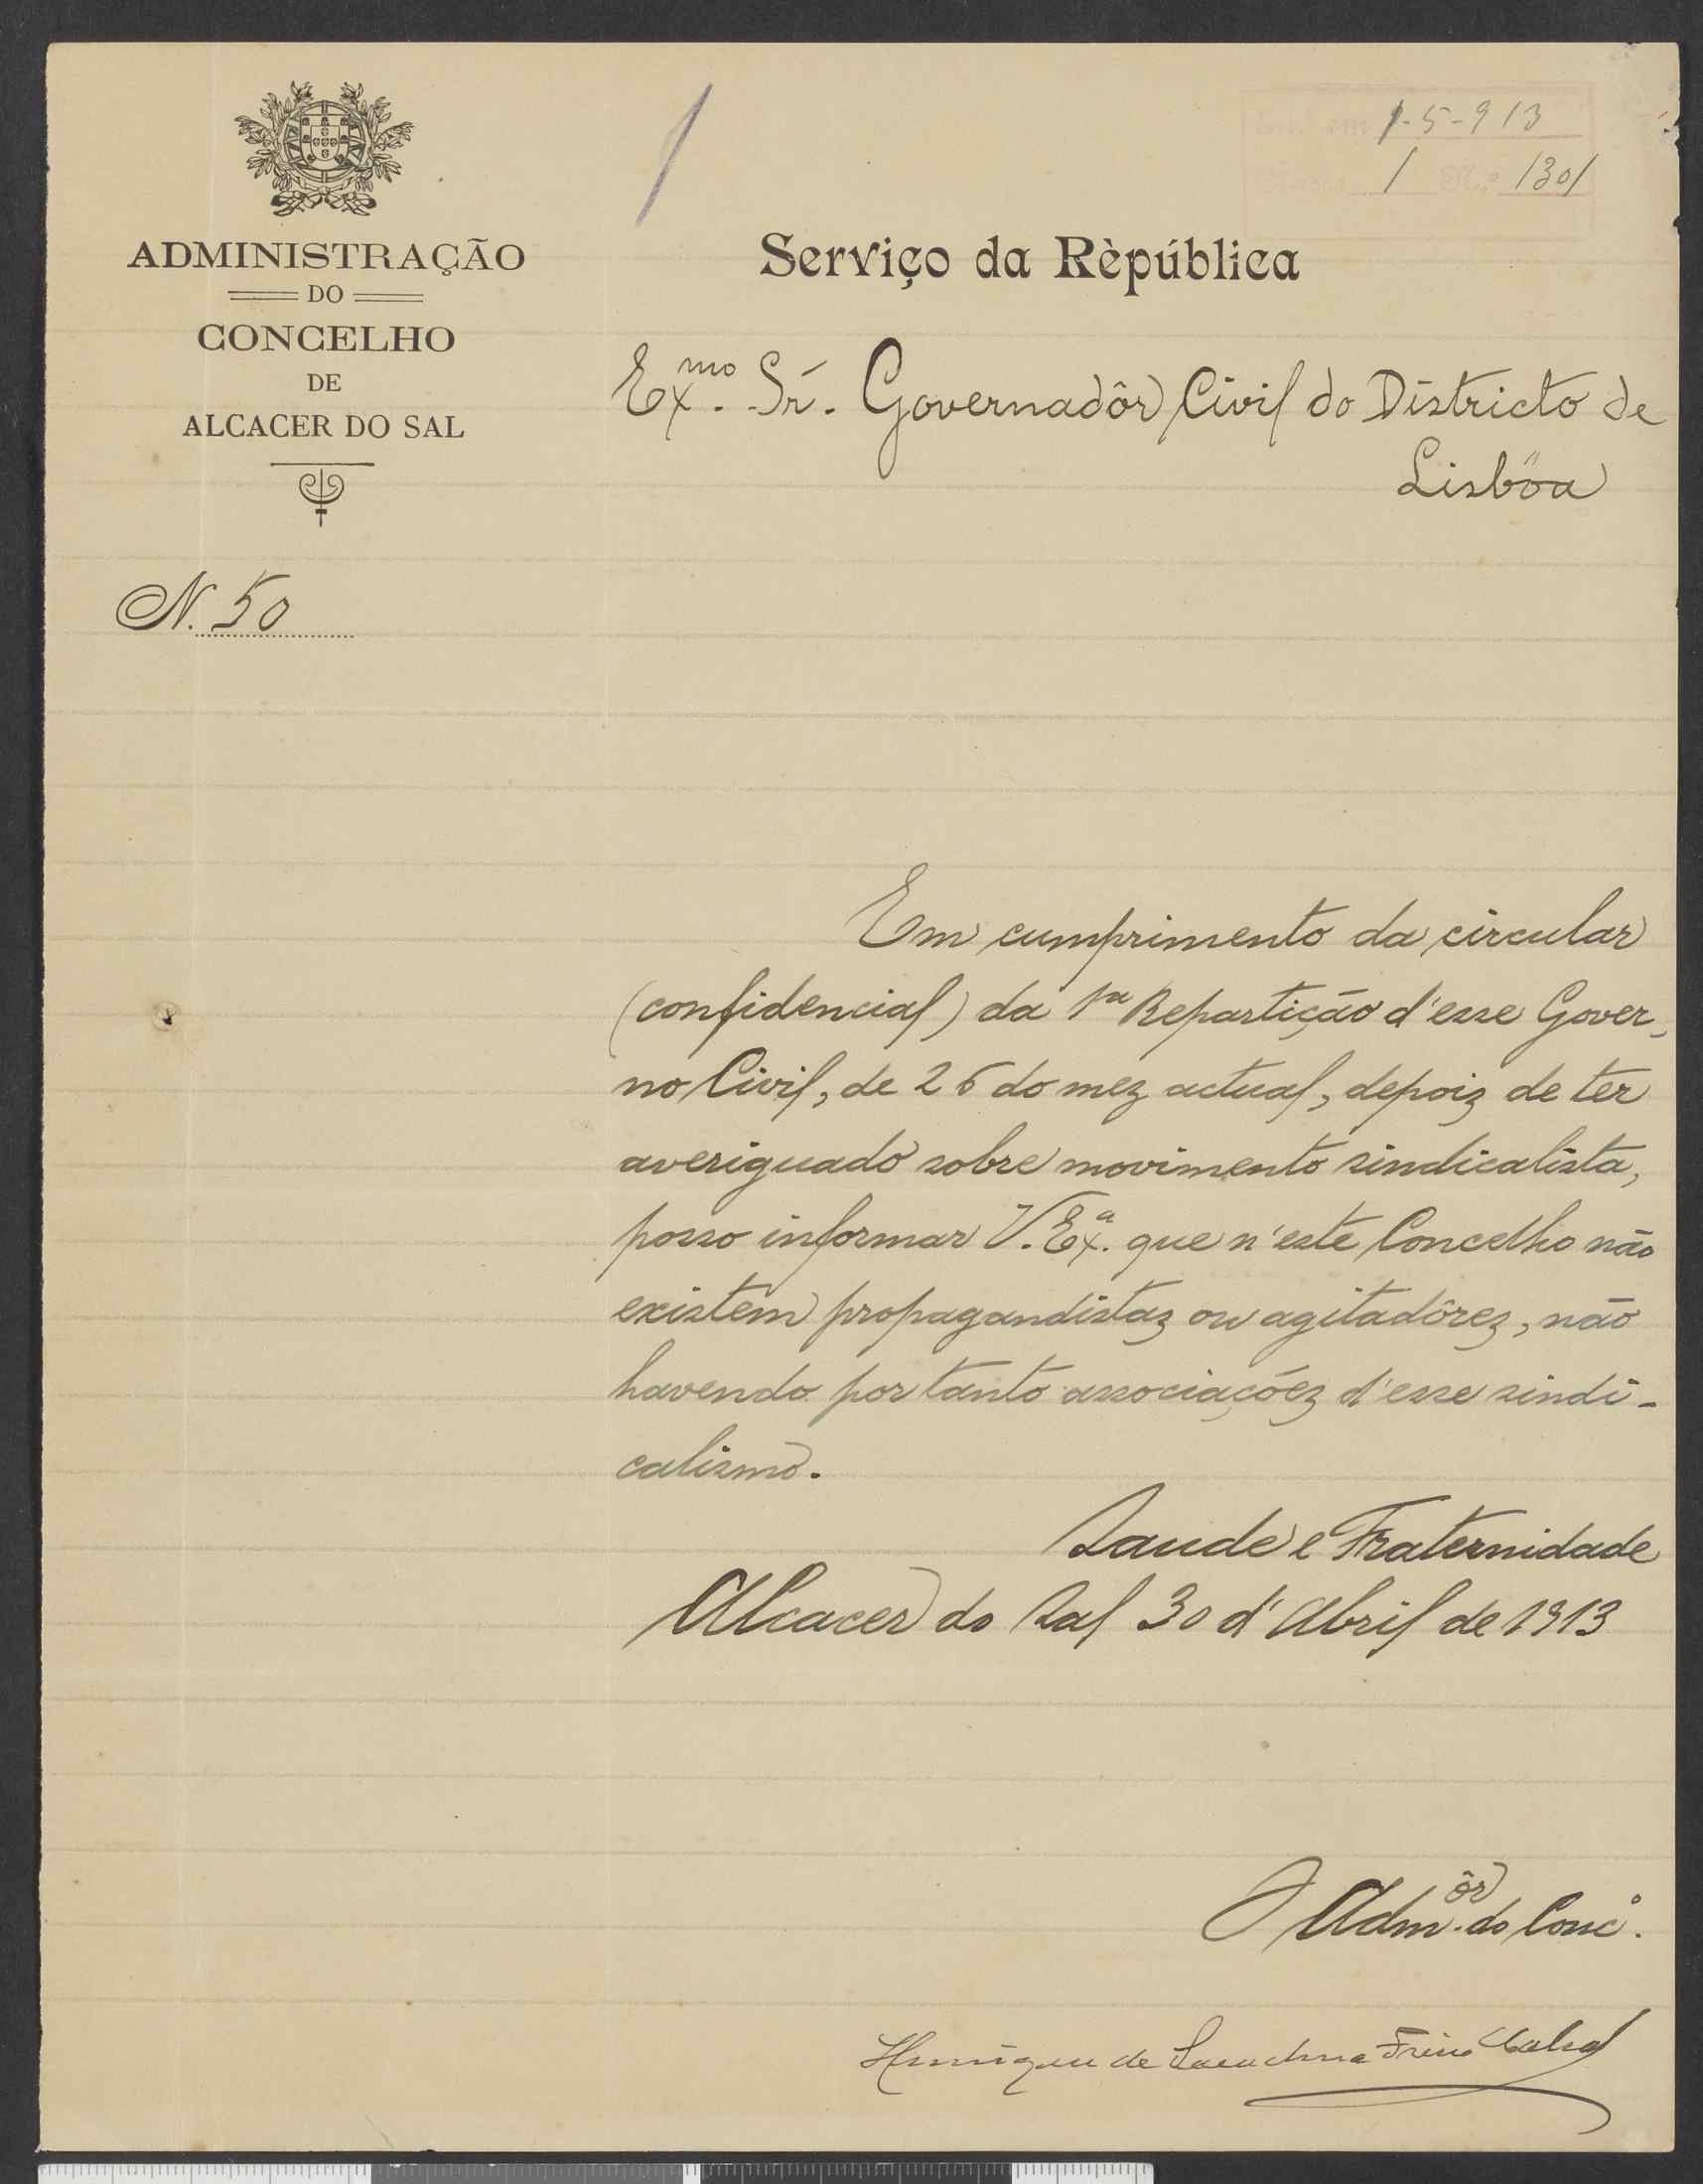 ADMINISTRAÇÃO
DO
CONCELHO
DE
ALCACER DO SAL
N. 50
1-5-913
1 N.º 1301
Serviço da Rèpública
Exmo. Sr. Governadôr Civil do Districto de
Lisbôa
Em cumprimento da circular
(confidencial) da 1ª Repartição d'esse Gover-
no Civil, de 26 do mez actual, depoiz de ter
averiguado sobre movimento sindicalista,
posso informar V. Exª. que n'este Concelho não
existem propagandistaz ou agitadôrez, não
havendo por tanto associaçóez d'esse sindi-
calismo.
Saude e Fraternidade
Alcacer do Sal 30 d'Abril de 1913
O Admôr. do Concº.
Henrique de Freire Cabral